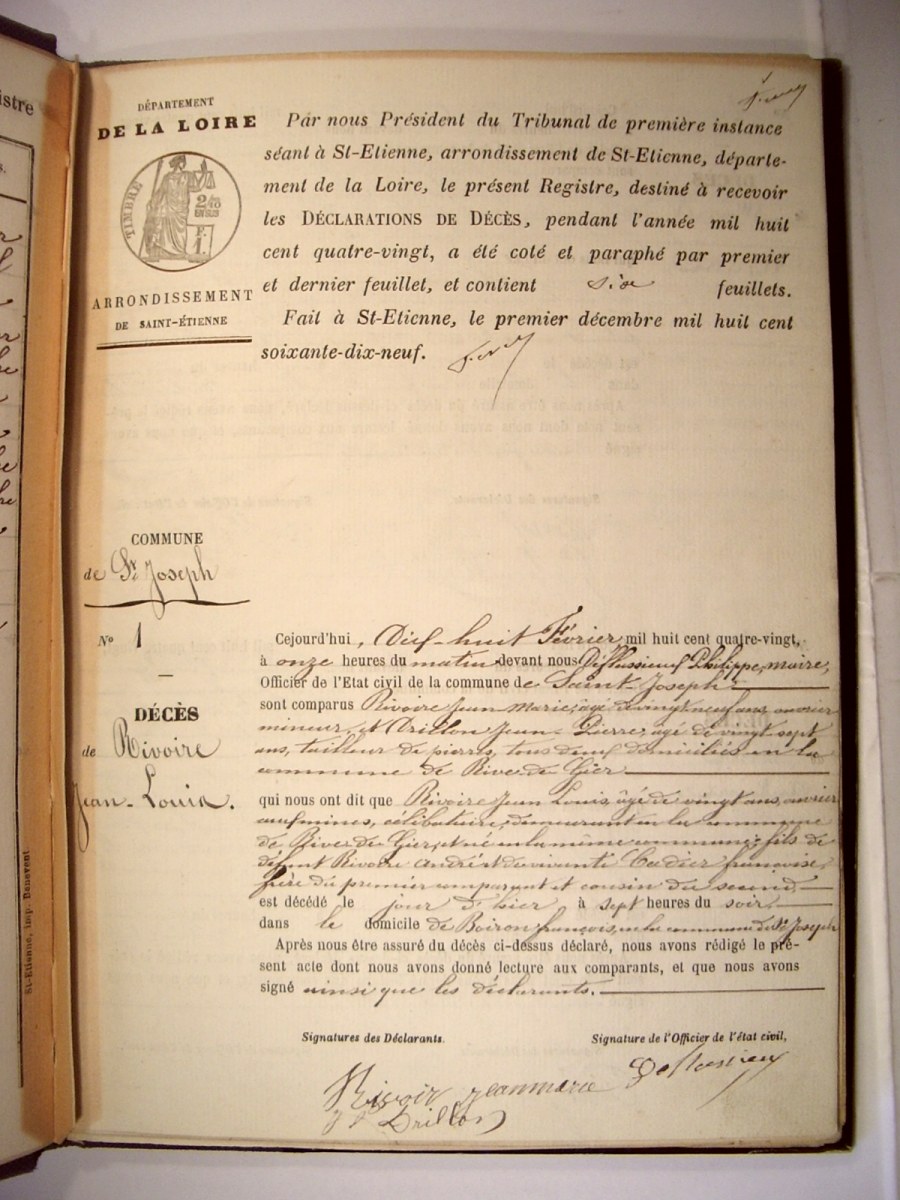 istre
s.
DÉPARTEMENT
DE LA LOIRE
TIMBRE
ARRONDISSEMENT
DE SAINT-ÉTIENNE
Par nous Président du Tribunal de première instance
séant à St-Etienne, arrondissement de St-Etienne, départe-
ment de la Loire, le présent Registre, destiné à recevoir
les DÉCLARATIONS DE DÉCÈS, pendant l'année mil huit
cent quatre-vingt, a été coté et paraphé par premier
et dernier feuillet, et contient six feuillets.
Fait à St-Etienne, le premier décembre mil huit cent
soixante-dix-neuf.
COMMUNE
de St Joseph
No 1
DÉCÈS
de Rivoire
Jean-Louis.
Cejourd'hui, Dix-huit Février mil huit cent quatre-vingt,
à onze heures du matin devant nous Philippe, maire,
Officier de l'Etat civil de la commune de Saint-Joseph
sont comparus Rivoire Jean-Marie, âgé de vingt neuf ans, ouvrier
mineur, et Drillon Jean-Pierre, âgé de vingt sept
ans, tailleur de pierres, tous deux domiciliés en la
commune de Rive-de-Gier
qui nous ont dit que Rivoire Jean Louis, âgé de vingt ans, ouvrier
aux mines, célibataire, demeurant en la commune
de Rive-de-Gier, et né en la même commune; fils de
défunt Rivoire André et de vivante Cadier françoise,
frère du premier comparant et cousin du second
est décédé le jour d'hier, à sept heures du soir
dans le domicile de Boiron françois, en la commune de St Joseph
Après nous être assuré du décès ci-dessus déclaré, nous avons rédigé le pré-
sent acte dont nous avons donné lecture aux comparants, et que nous avons
signé ainsi que les déclarants.
Signatures des Déclarants.
Signature de l'Officier de l'état civil,
Rivoir jeanmarie
Drillon
St-Etienne, imp. Benevent